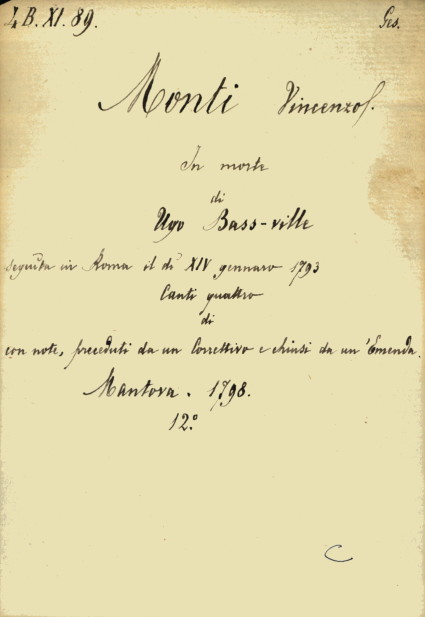 4 B. XI. 89.
Ges.
Monti Vincenzo.
In morte
di
Ugo Bass-ville
seguita in Roma il dì XIV gennaro 1793
Canti quattro
di
con note, preceduti da un Correttivo e chiusi da un' Emenda.
Mantova. 1798.
12.°
C